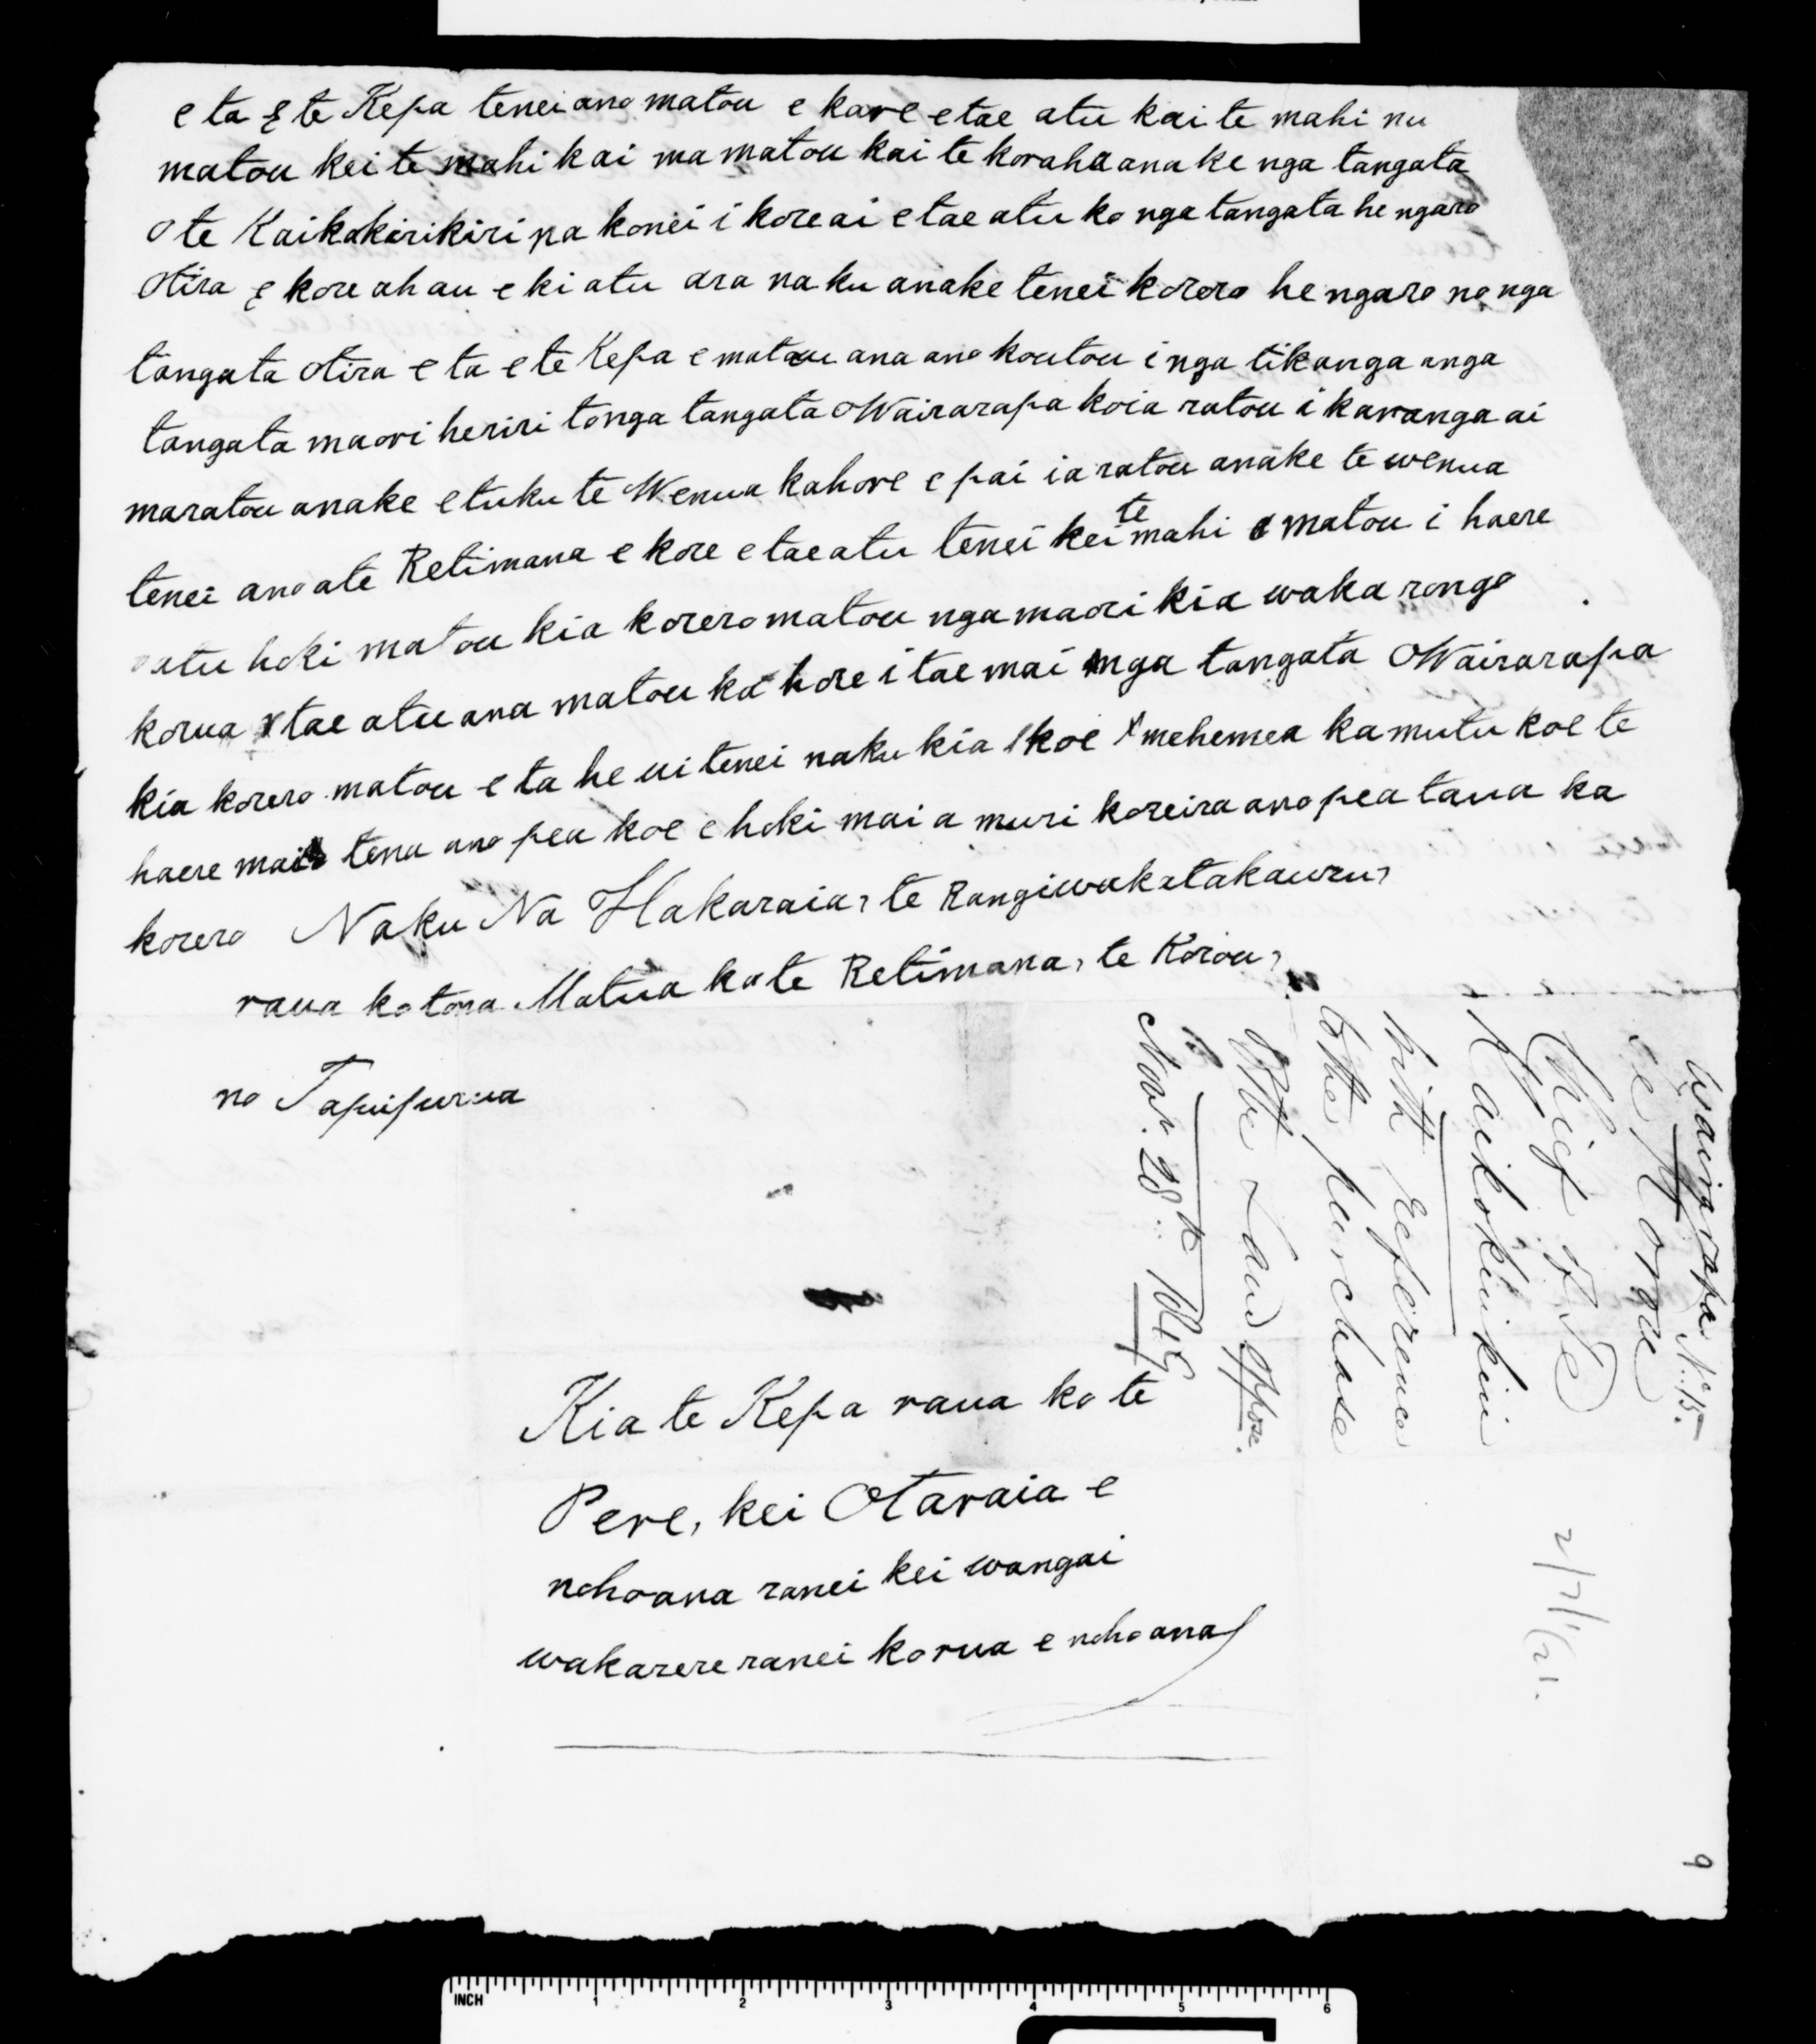 e ta e te Kepa tenei ano matou e kore e tae atu kai te mahi nu
matou kei te mahi kai ma matou kai te koraha anake nga tangata
o te Kaikokirikiri na konei i kore ai e tae atu ko nga tangata he ngaro
otira e kore ahau e ki atu ara naku anake tenei korero he ngaro no nga
tangata otira e ta e te Kepa e matau ana ano koutou i nga tikanga anga
tangata maori he riri to nga tangata o Wairarapa koia ratou i karanga ai
ma ratou anake e tuku te Wenua kahore e pai ia ratou anake te wenua
tenei ano a te Retimana e kore e tae atu tenei kei te mahi e matou i haere
atu hoki matou kia korero matou nga maori kia waka rongo
korua tae atu ana matou kahore i tae mai nga tangata o Wairarapa
kia korero matou e ta he ui tenei naku kia koe mehemea ka mutu koe te
haere mai tena ano pea koe e hoki mai a muri koreira ano pea taua ka
korero Naku Na Hakaraia, te Rangiwakatakauru,
raua ko tona Matua ko te Retimana, te Korou,
no Tapuipurua
Wairarapa No. 15.
Te Korou
Chief of Te
Kaikokirikiri
with reference
to the purchase
of the Land oppose.
Novr. 28th 1848
Kia te Kepa raua ko te
Pere, kei Otaraia e
nohoana ranei kei wangai
wakarere ranei korua e nohoana
2/7/21.
9
INCH 1 2 3 4 5 6